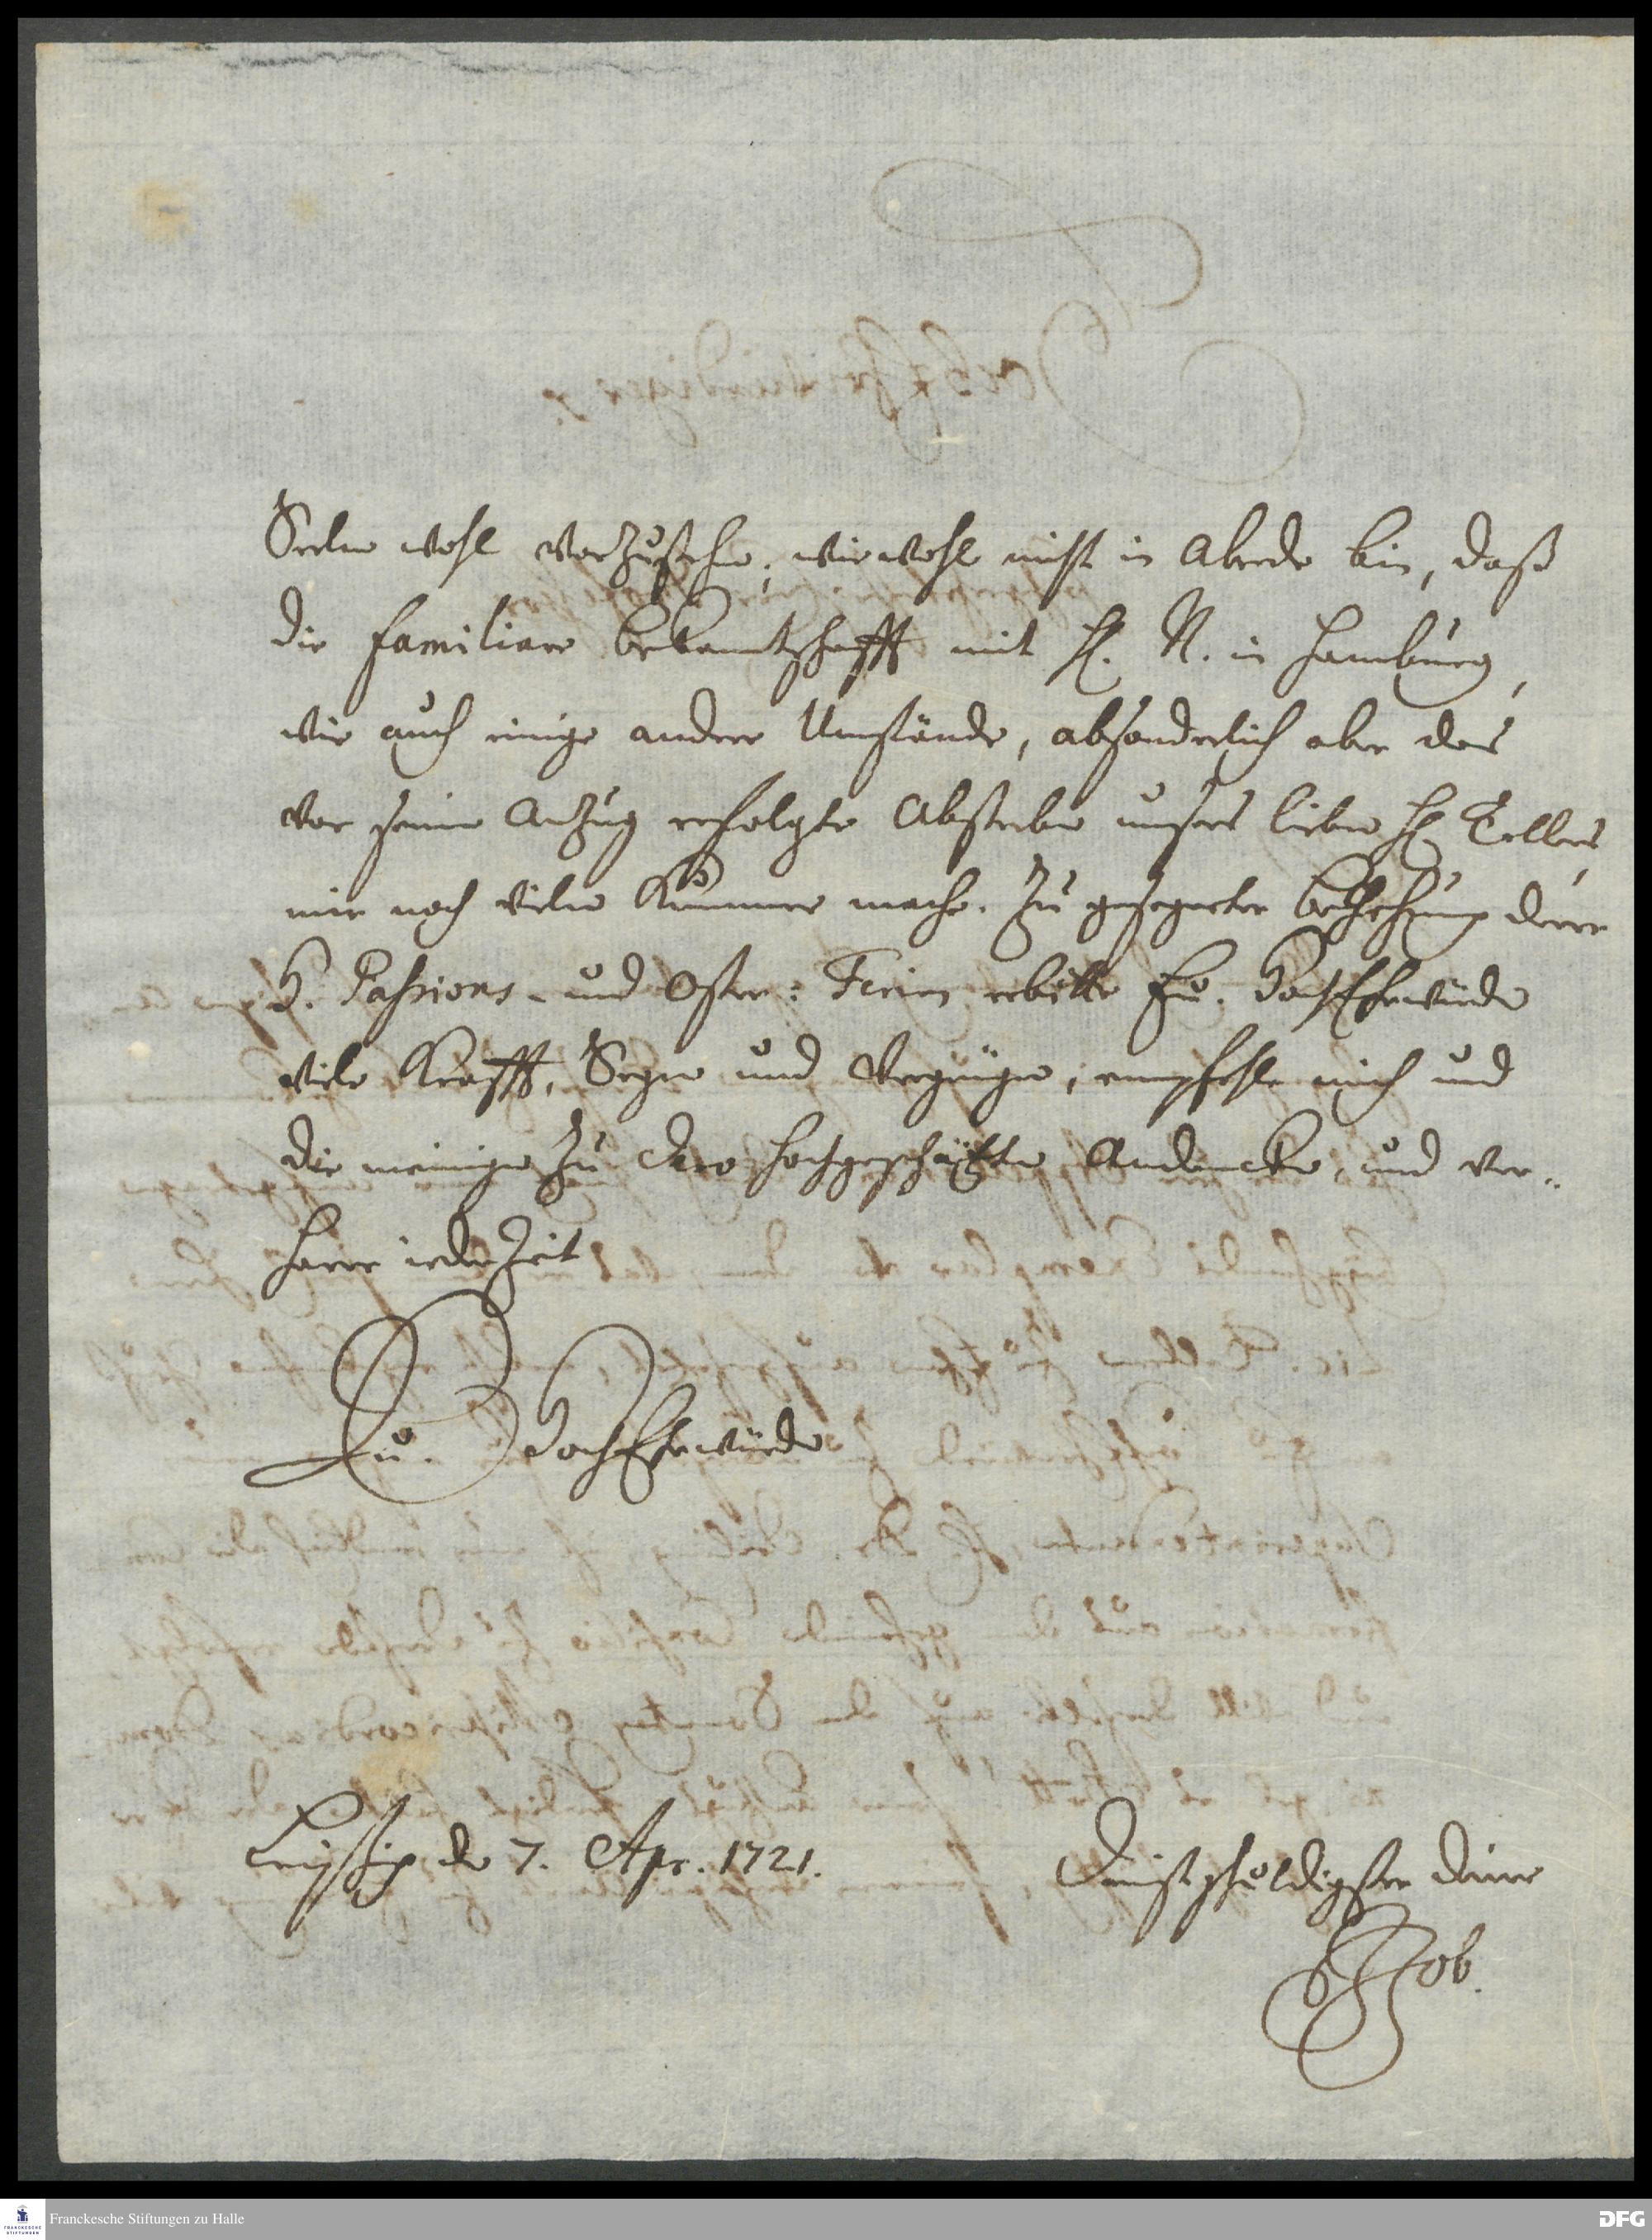 Seelen wohl vorzustehen; wiewohl nicht in Abrede bin, daß
die familiare bekantschafft mit H. N. in Hamburg,
wie auch einige andere Umstände, absonderlich aber das
vor seinem Anzug erfolgte Absterben unsers lieben H. Tellers,
mir noch vielen Kummer mache. Zu gesegneter begehung derer
H. Passions- und Oster-Ferien erbitte Eu. HochEhrwürden
viele Krafft, Segen und Vergnügen, empfehle mich und
die meinigen zu dero hochgeschätzten Andencken, und ver-
harre iederzeit
Eu. HochEhrwürden
Leipzig den 7. Apr. 1721.
Dienstschuldigster Diener
Job.
Franckesche Stiftungen zu Halle
DFG